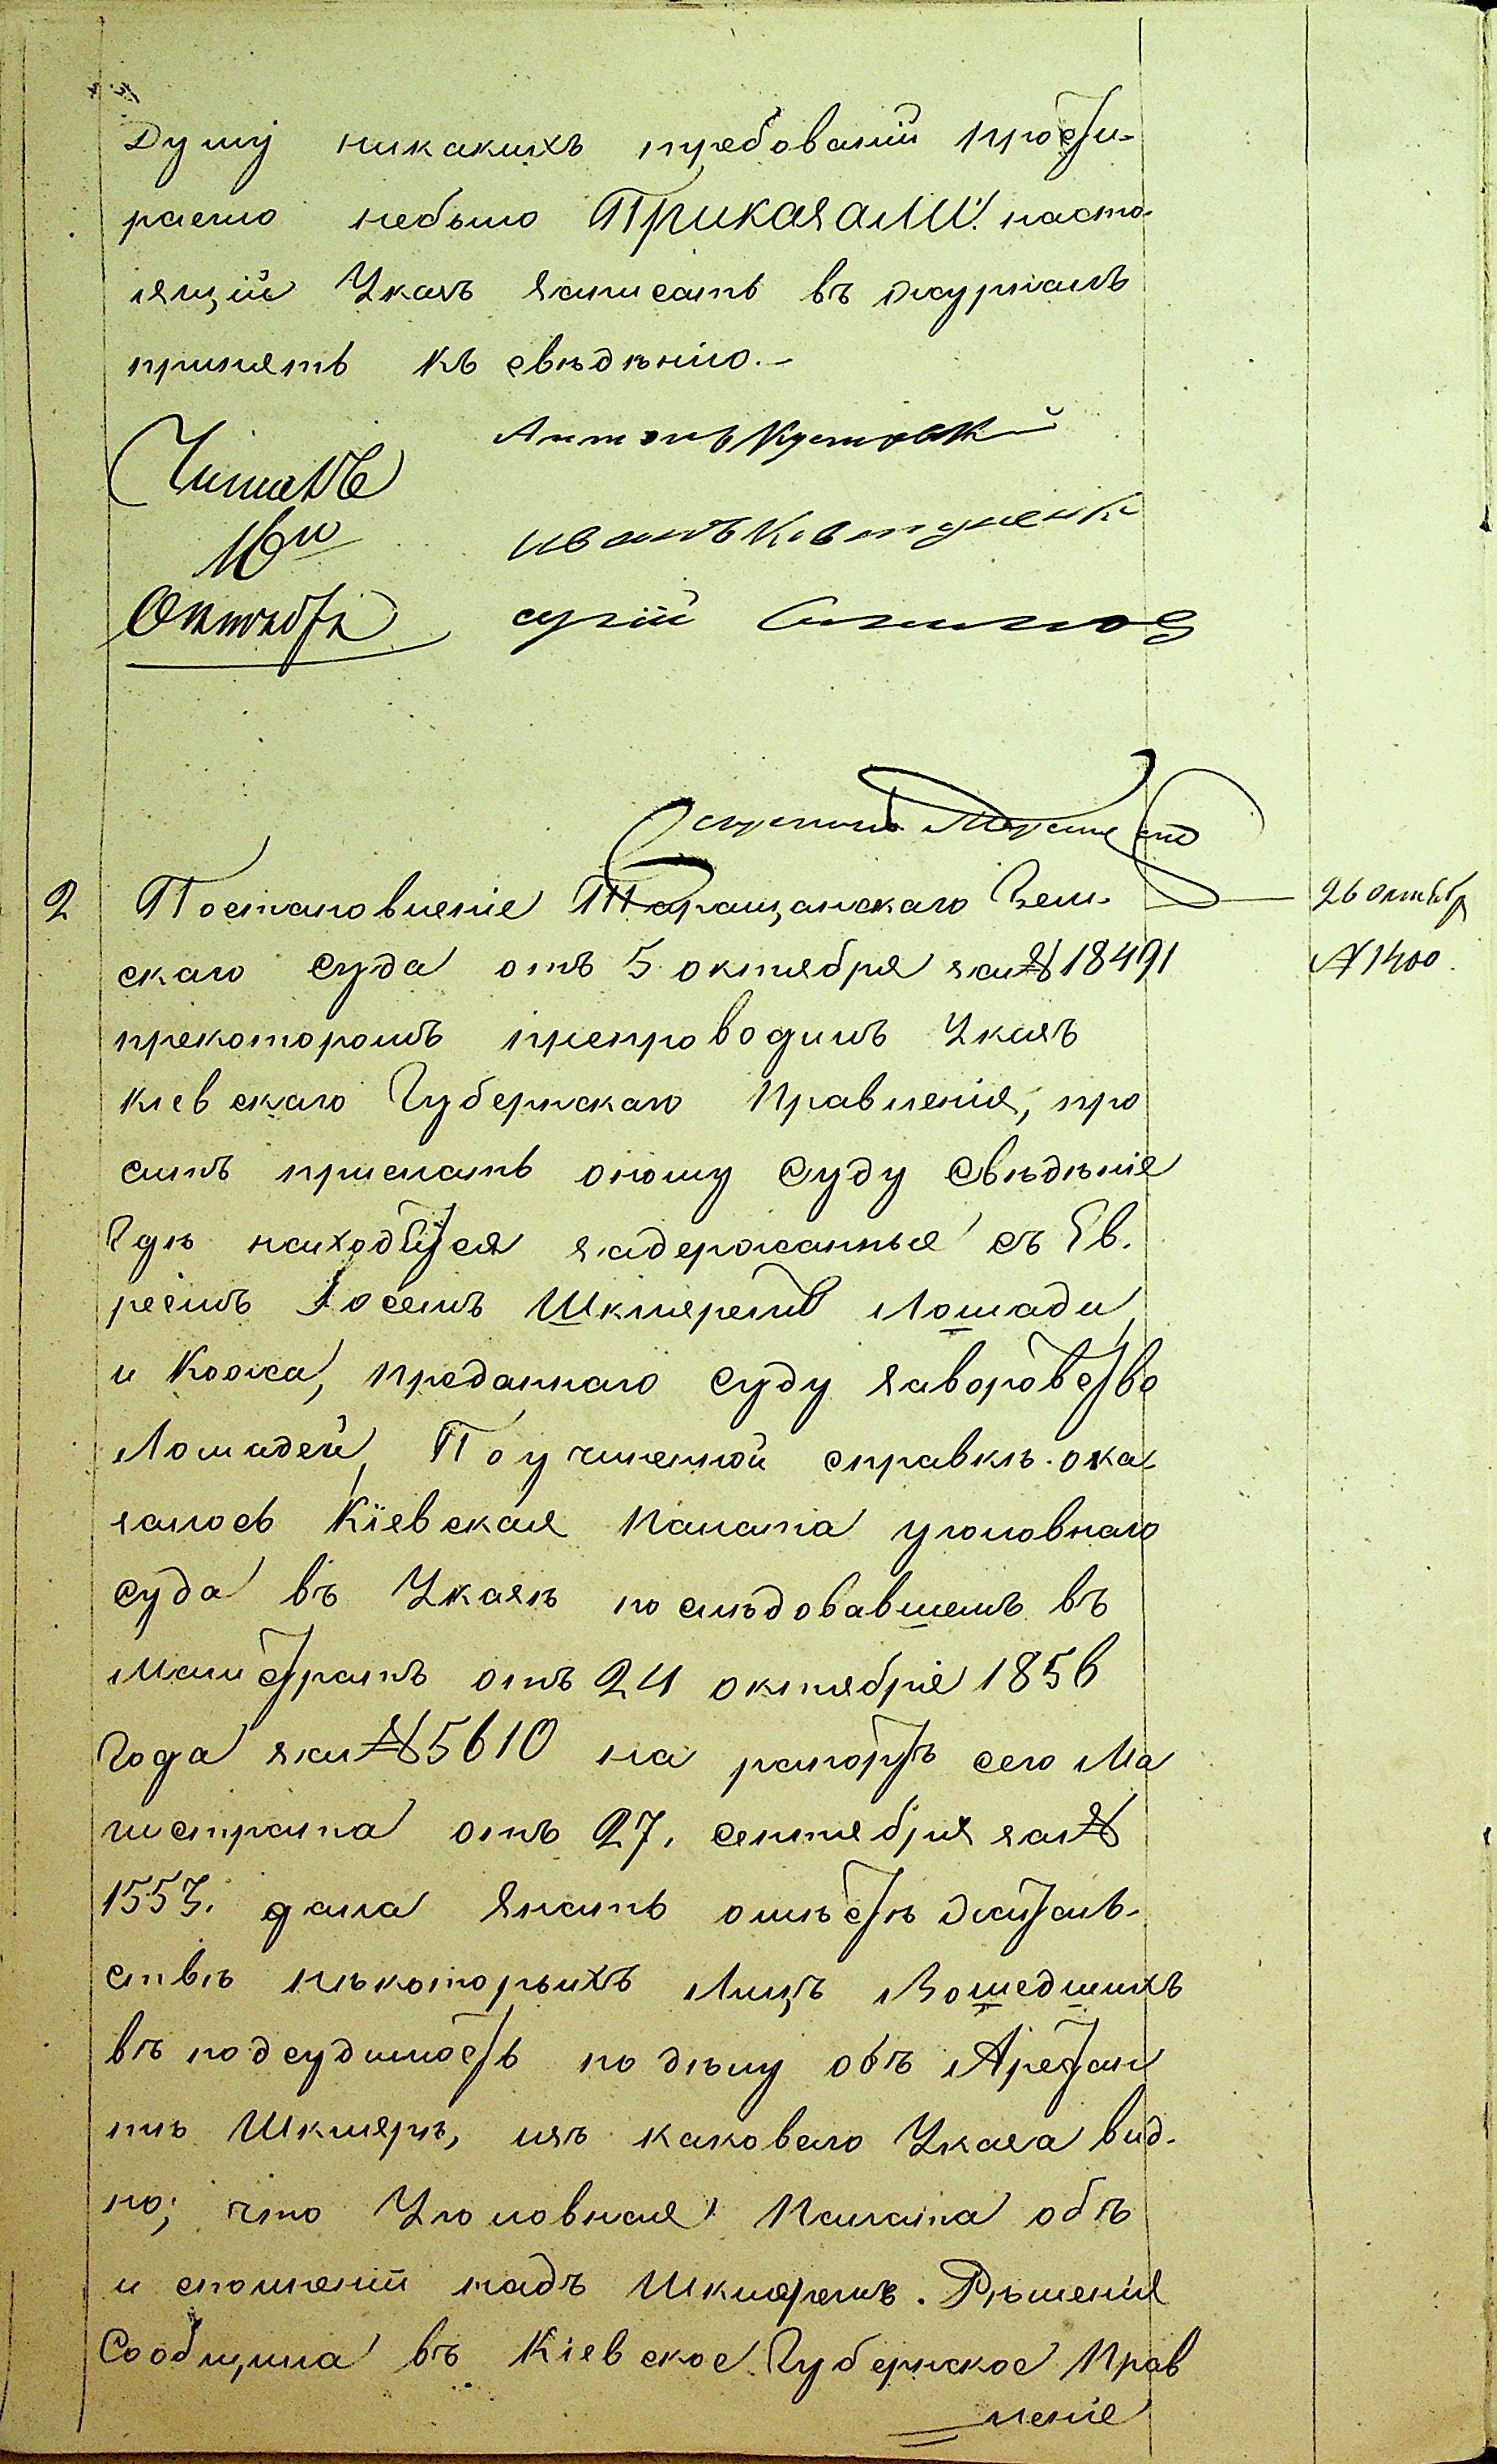 Думу никакихъ требованій прости-
раемо небыло Приказали: насто-
ящій Указъ записать въ журналъ
принять къ свѣдѣнію.-
Читалъ
16го
Октября
Антонъ
иванъ
2 Постановленіе Таращанскаго Зем-
скаго Суда отъ 5 октября за № 18491
прекоторомъ препроводимъ Указъ
Кіевскаго Губернскаго Правленія, про
ситъ прислать оному Суду Свѣдѣніе
Гдѣ находятся задержанные съ Ев-
реемъ Іосемъ Шкляремъ Лошади
и Кожа, преданнаго суду заворовство
Лошадей, По учиненной справкѣ ока-
залось Кіевская Палата уголовнаго
суда въ Указѣ последовавшемъ въ
Магистратъ отъ 24 октября 1856
Года за № 5610 на рапортъ сего Ма
гистрата отъ 27. сентября за №
1553. дала Знать омѣстѣ жительъ-
ствѣ нѣкоторыхъ Лицъ Вошедшихъ
въ подсудимость по дѣлу объ Арестан
тѣ Шклярѣ, изъ каковаго Указа вид-
но; что Уголовная Палата объ
исполненіи надъ Шкляремъ. Рѣшенія
Сообщила въ Кіевское Губернское Прав
леніе
26 октябр
№ 1400.